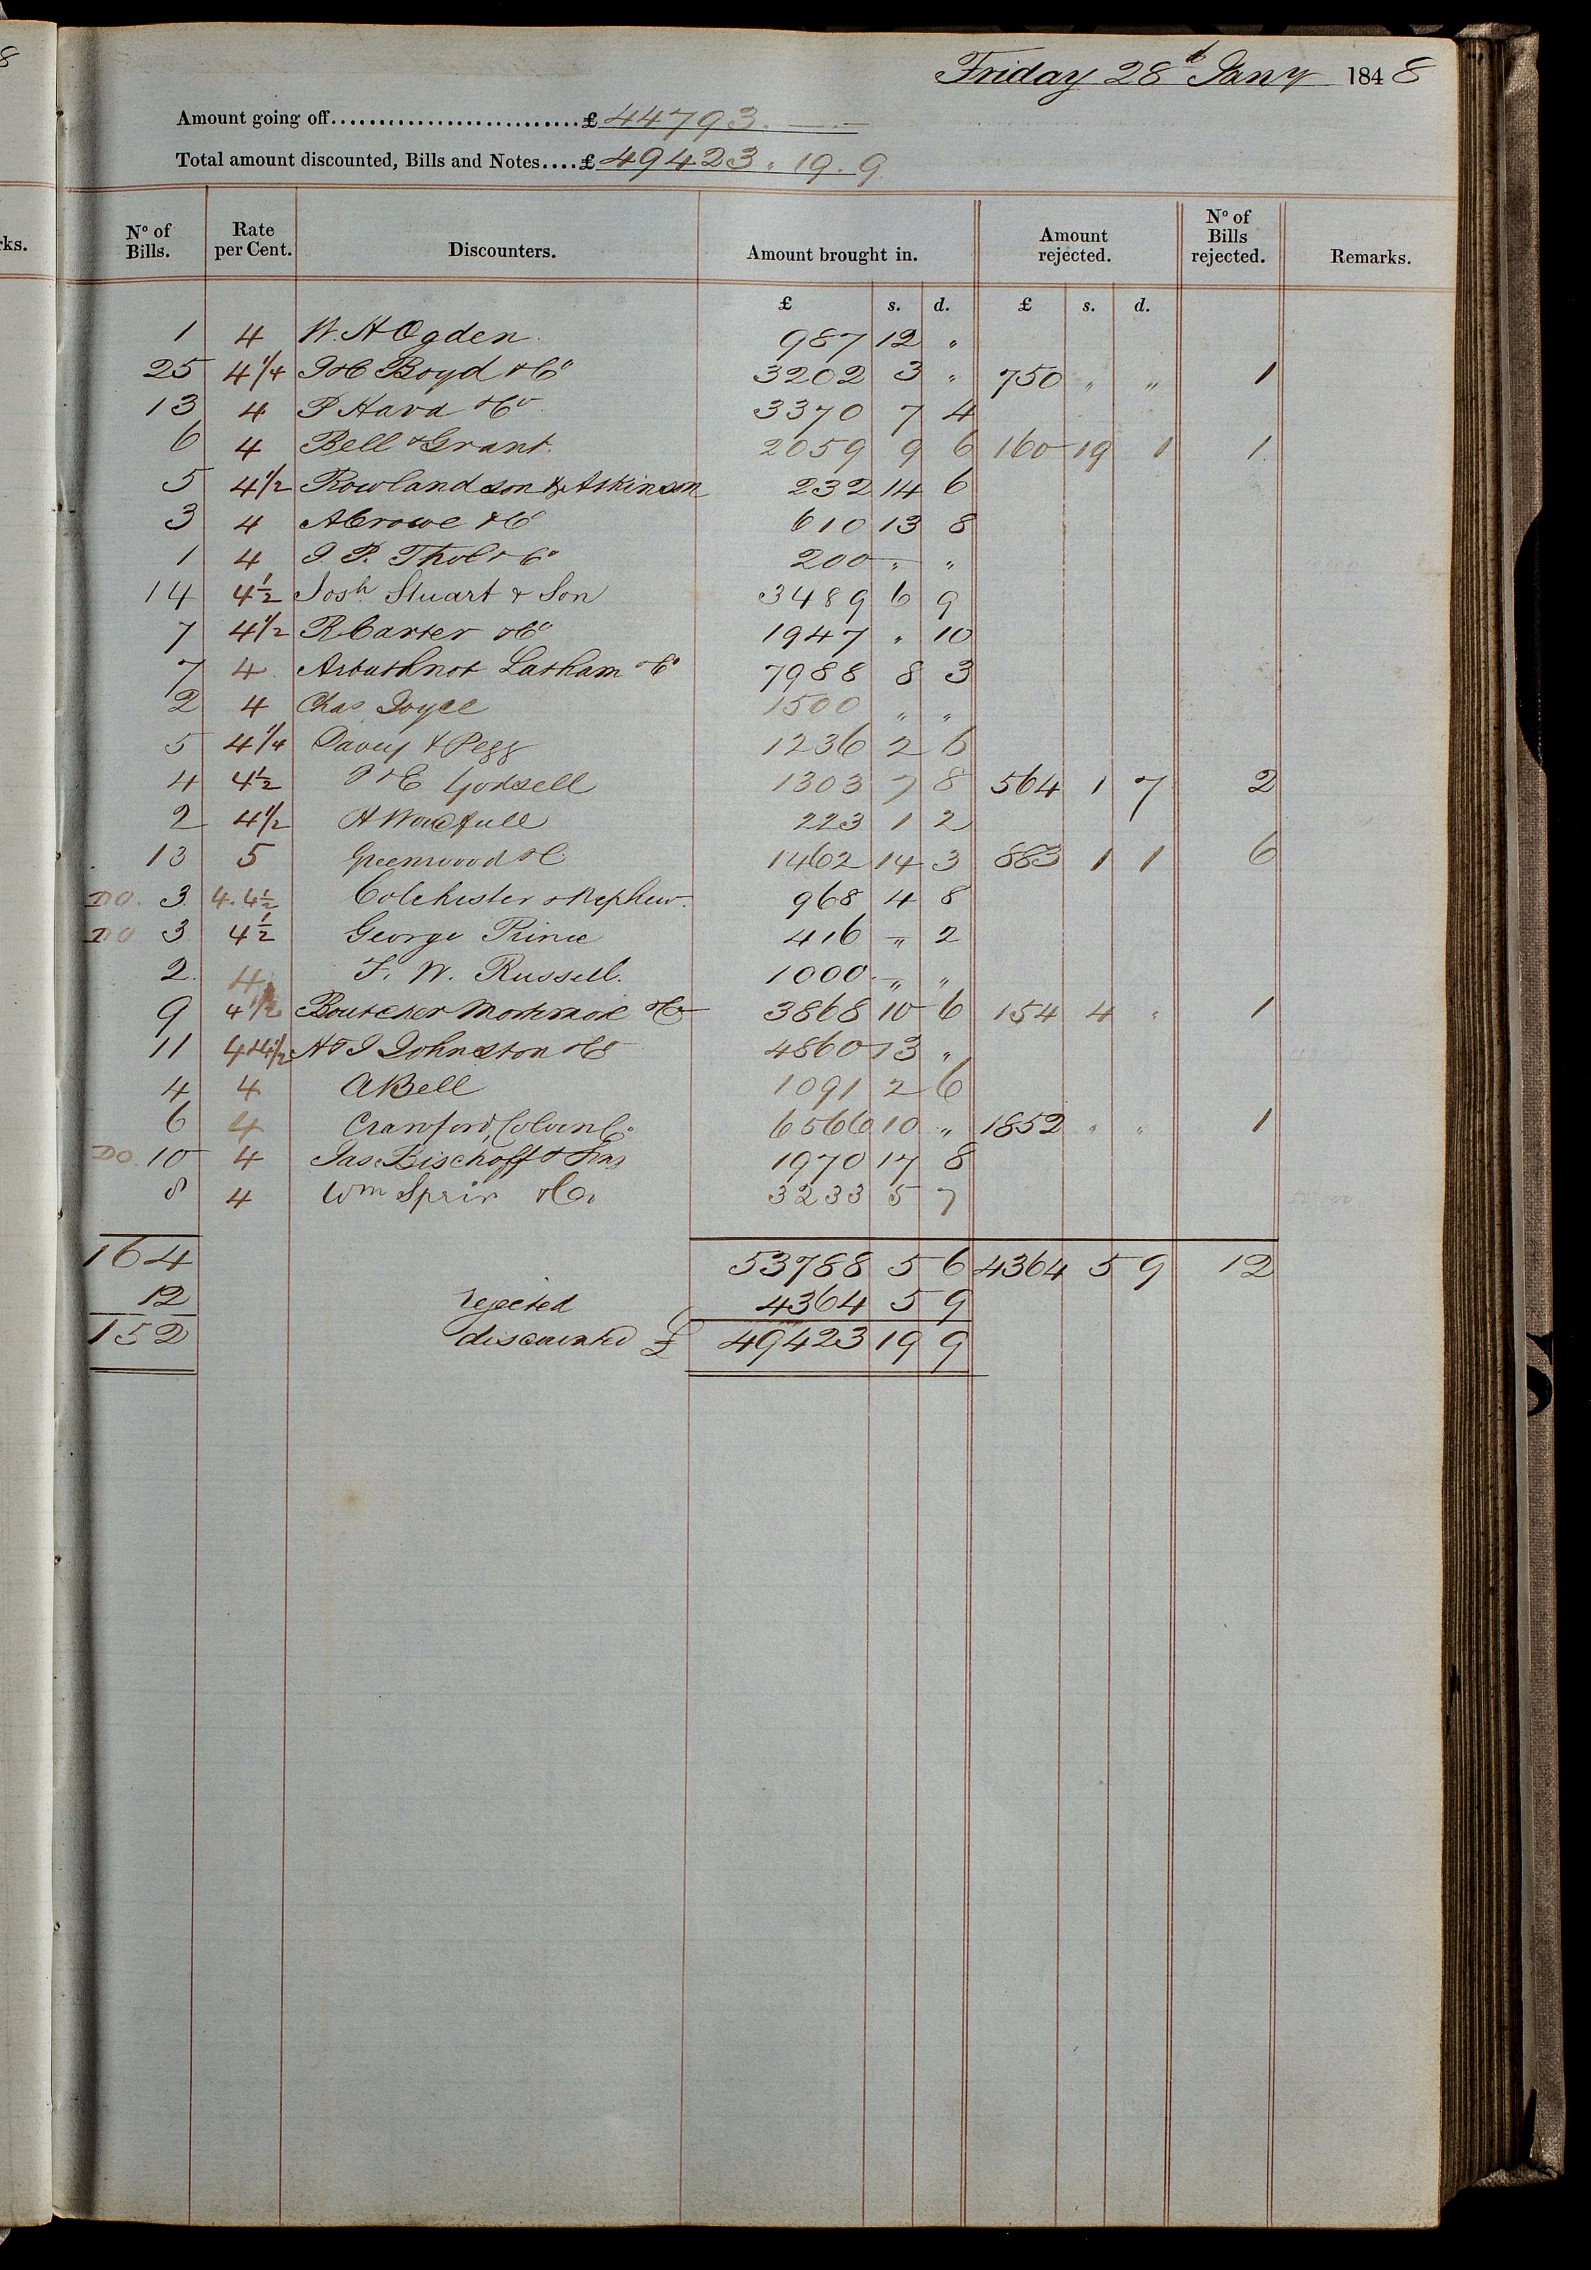 8
rks.
Friday 28th Jany 1848
Amount going off........................... £ 44793. —
Total amount discounted, Bills and Notes.... £ 49423. 19. 9
No of Bills. Rate per Cent. Discounters. Amount brought in. Amount rejected. No of Bills rejected. Remarks.
£ s. d. £ s. d.
1 4 W. H Ogden 987 12 "
25 4 1/4 Boyd & Co 3202 3 " 750 " " 1
13 4 P Hava & Co 3370 7 4
6 4 Bell & Grant. 2059 9 6 160 19 1 1
5 4 1/2 Rowlandson & Atkinson 232 14 6
3 4 A Crowe & Co 610 13 8
1 4 J. P. Thol & Co 200 " "
14 4 1/2 Josh Stuart & Son 3489 6 9
7 4 1/2 R Carter & Co 1947 " 10
7 4 Arbuthnot Latham & Co 7988 8 3
2 4 Chas Joyce 1500 " "
5 4 1/4 Davey & Pegg 1236 2 6
4 4 1/2 J & E Godsell 1303 7 8 564 1 7 2
2 4 1/2 A Woodfull 223 1 2
13 5 Greenwood & C 1462 14 3 883 1 1 6
DO. 3. 4. 4 1/2 Colchester & Nephew. 968 4 8
DO 3 4 1/2 George Prince 416 " 2
2. 4 F. W. Russell. 1000 " "
9 4 1/2 Boutcher Mortimore & Co 3868 10 6 154 4 " 1
11 4 & 4 1/2 H & J Johnston & Co 4860 13 "
4 4 A Bell 1091 2 6
6 4 Crawford, Colvin Co 6566 10 " 1852 " " 1
DO. 10 4 Jas Bischoff & Sons 1970 17 8
8 4 Wm & Co 3233 5 7
164 53788 5 6 4364 5 9 12
12 rejected 4364 5 9
152 discounted £ 49423 19 9